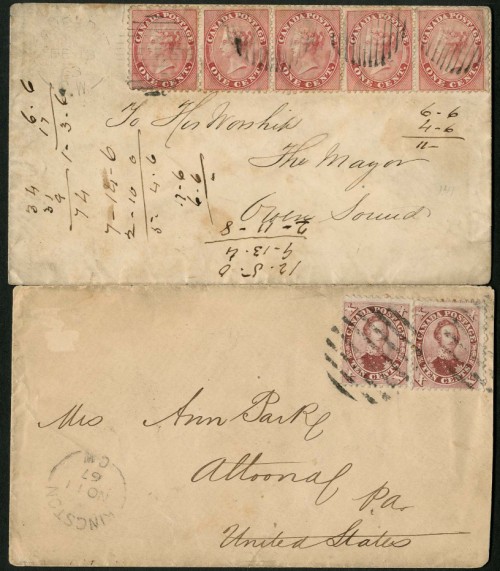 CANADA POSTAGE
ONE CENT.
CANADA POSTAGE
ONE CENT.
CANADA POSTAGE
ONE CENT.
CANADA POSTAGE
ONE CENT.
CANADA POSTAGE
ONE CENT.
To His Worship
The Mayor
Owen Sound
6-6
4-6
11-
6.6
17
1-3-6
34
74
7-14-6
2-10-0
5-4.6
6.6
2-11-8
9-13.4
12.5.0
CANADA POSTAGE
TEN CENTS
CANADA POSTAGE
TEN CENTS
Mrs Ann Parke
Altoona
Pa.
United States
KINGSTON
NO 11
67
C.W